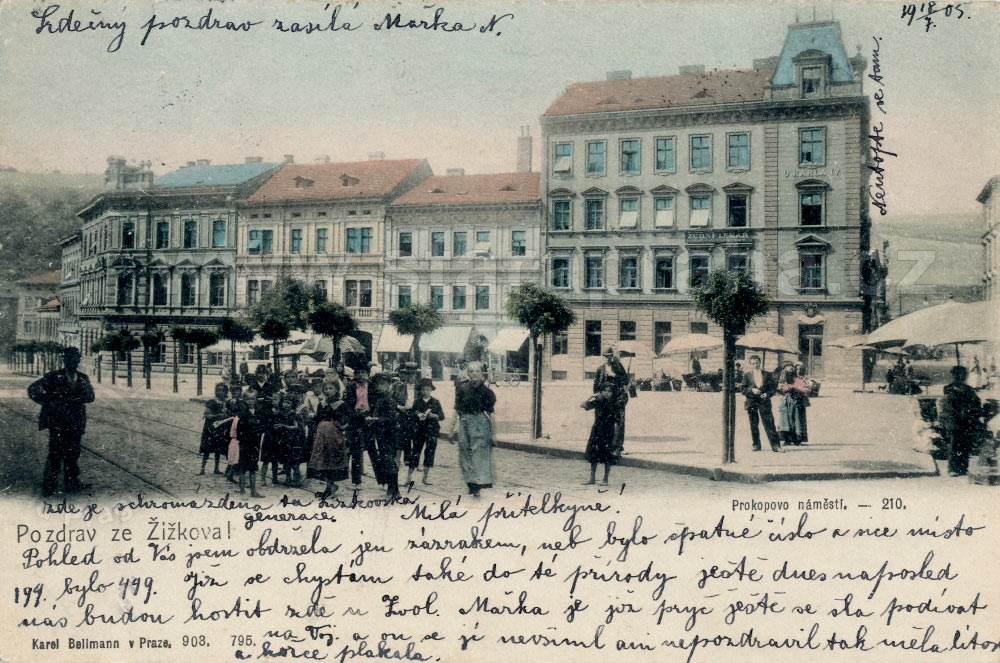 Srdečný pozdrav zasílá Mařka N.
19 18/7. 05.
Neutopte se tam.
U KARLA IV
zde je schromazdena ta Žižkovská
generace.
Pozdrav ze Žižkova!
Prokopovo náměstí. — 210.
Milá přítelkyně!
Pohled od Vás jsem obdržela jen zázrakem, neb bylo špatné číslo a sice místo
199. bylo 499. Již se chystám také do té přírody ještě dnes naposled
nás budou hostit zde u Zvol. Mařka je již pryč ještě se šla podívat
na Voj. a on se jí nevšiml ani nepozdravil tak měla lítost
a hořce plakala.
Karel Bellmann v Praze. 903. 795.